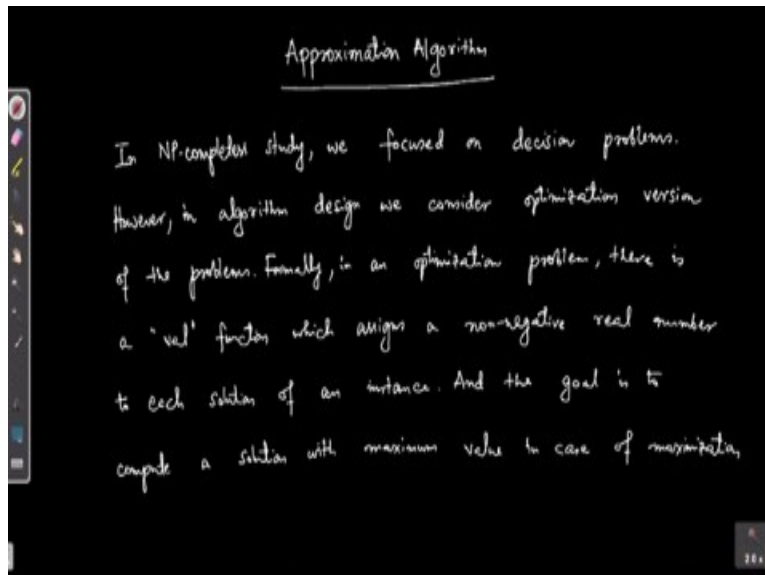 Approximation Algorithm
In NP-completen study, we focused on decision problems.
However, in algorithm design we consider optimization version
of the problems. Formally, in an optimization problem, there is
a "val" function which assigns a non-negative real number
to each solution of an instance. And the goal is to
compute a solution with maximum value in case of maximization